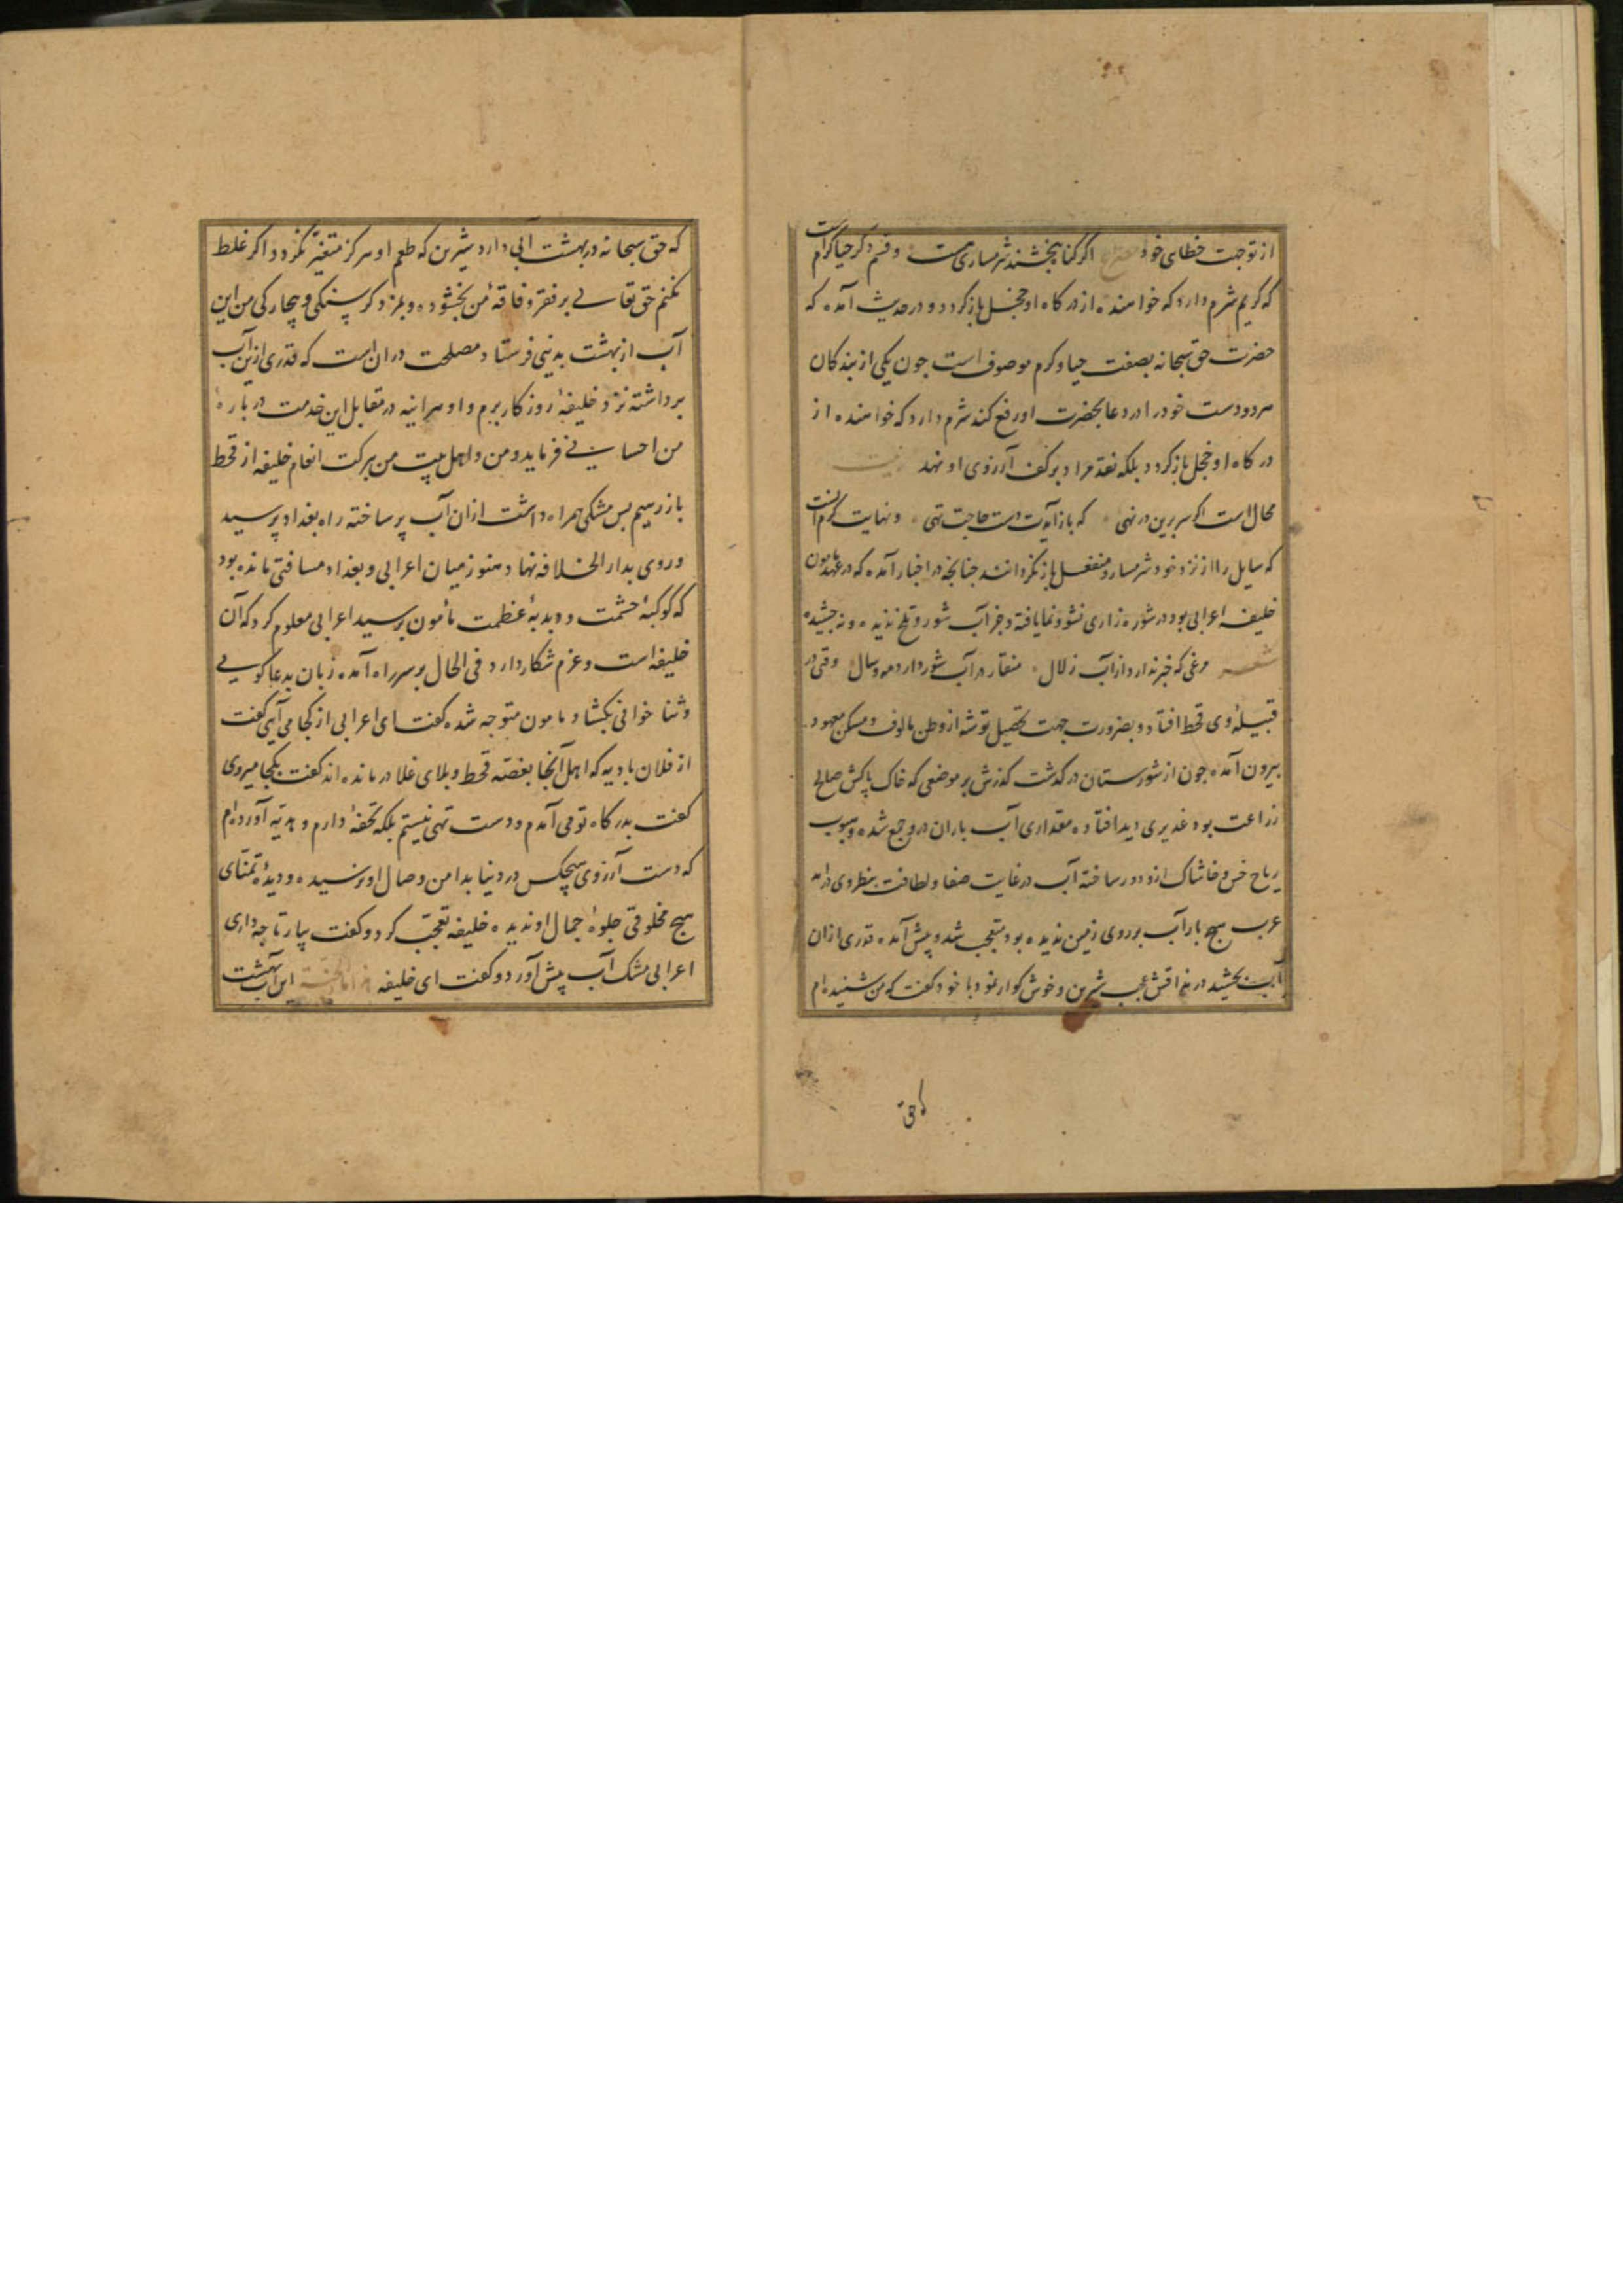 از توجت خطای خود مصرع اگر گناه بخشند شرمساری هست و قسم دگر حیا کرام است
که کریم شرم دارد که خواهنده از درکاه او خجل بازکردد و در حدیث آمده که
حضرت حق سبحانه بصفت حیا و کرم موصوف است جون یکی از بندکان
هر دو دست خود را در دعا بحضرت او رفع کند شرم دارد که خواهنده از
درکاه او خجل بازکردد بلکه نقد مراد بر کف آرزوی او نهد بیت
محال است اکر سر برین در نهی که باز آیدت دست حاجت تهی و نهایت کرم آنست
که سایل را از نزد خود شرمسار و منفعل بازنکردانند جنانجه در اخبار آمده که در عهد مامون
خلیفه اعرابی بود در شوره زاری نشو و نما یافته و جز آب شور و تلخ ندیده و نه جشیده
شعر مرغی که خبر ندارد از آب زلال منقار در آب شور دارد همه سال وقتی در
قبیلهٔ وی قحط افتاد و بضرورت جهت تحصیل توشه از وطن مالوف و مسکن معهود
بیرون آمده جون از شورستان درکذشت کذرش بر موضعی که خاک پاکش صالح
زراعت بود غدیری دید افتاده مقداری آب باران درو جمع شده و هبوب
ریاح خس و خاشاک ازو دور ساخته آب در غایت صفا و لطافت بنظر وی درآمد
عرب هیج بار آب بر روی زمین ندیده بود متعجب شد و پیش آمده قدری ازان
آب بجشید در مذاقش عجب شیرین و خوش کوار نمود با خود کفت که من شنیده ام
که حق
که حق سبحانه در بهشت آبی دارد شیرین که طعم او هرکز متغیر نکردد و اکر غلط
نکنم حق تعالی بر فقر و فاقهٔ من بخشوده و بمزد کرسنکی و بیچارکی من این
آب از بهشت بدنیی فرستاد مصلحت دران است که قدری ازین آب
برداشته نزد خلیفهٔ روزکار برم و او هر اینه در مقابل این خدمت در بارهٔ
من احسانی فرماید و من و اهل بیت من ببرکت انعام خلیفه از قحط
باز رهیم بس مشکی همراه داشت ازان آب پر ساخته راه بغداد پرسید
و روی بدار الخلافه نهاد هنوز میان اعرابی و بغداد مسافتی مانده بود
که کوکبهٔ حشمت و دبدبهٔ عظمت مأمون برسید اعرابی معلوم کرد که آن
خلیفه است و عزم شکار دارد فی الحال بر سر راه آمده زبان بدعا کویی
و ثنا خوانی بکشاد مامون متوجه شده کفت ای اعرابی از کجا می آیی کفت
از فلان بادیه که اهل آنجا بغصه قحط و بلای غلا درمانده اند کفت بکجا میروی
کفت بدرکاه تو می آمدم و دست تهی نیستم بلکه تحفهٔ دارم و هدیه آورده ام
که دست آرزوی هیچکس در دنیا بدامن وصال او نرسیده و دیدهٔ تمنای
هیج مخلوقی جلوهٔ جمال او ندیده خلیفه تعجب کرد و کفت بیار تا چه داری
اعرابی مشک آب پیش آورد و کفت ای خلیفه هذا ماء الجنة این آب بهشت